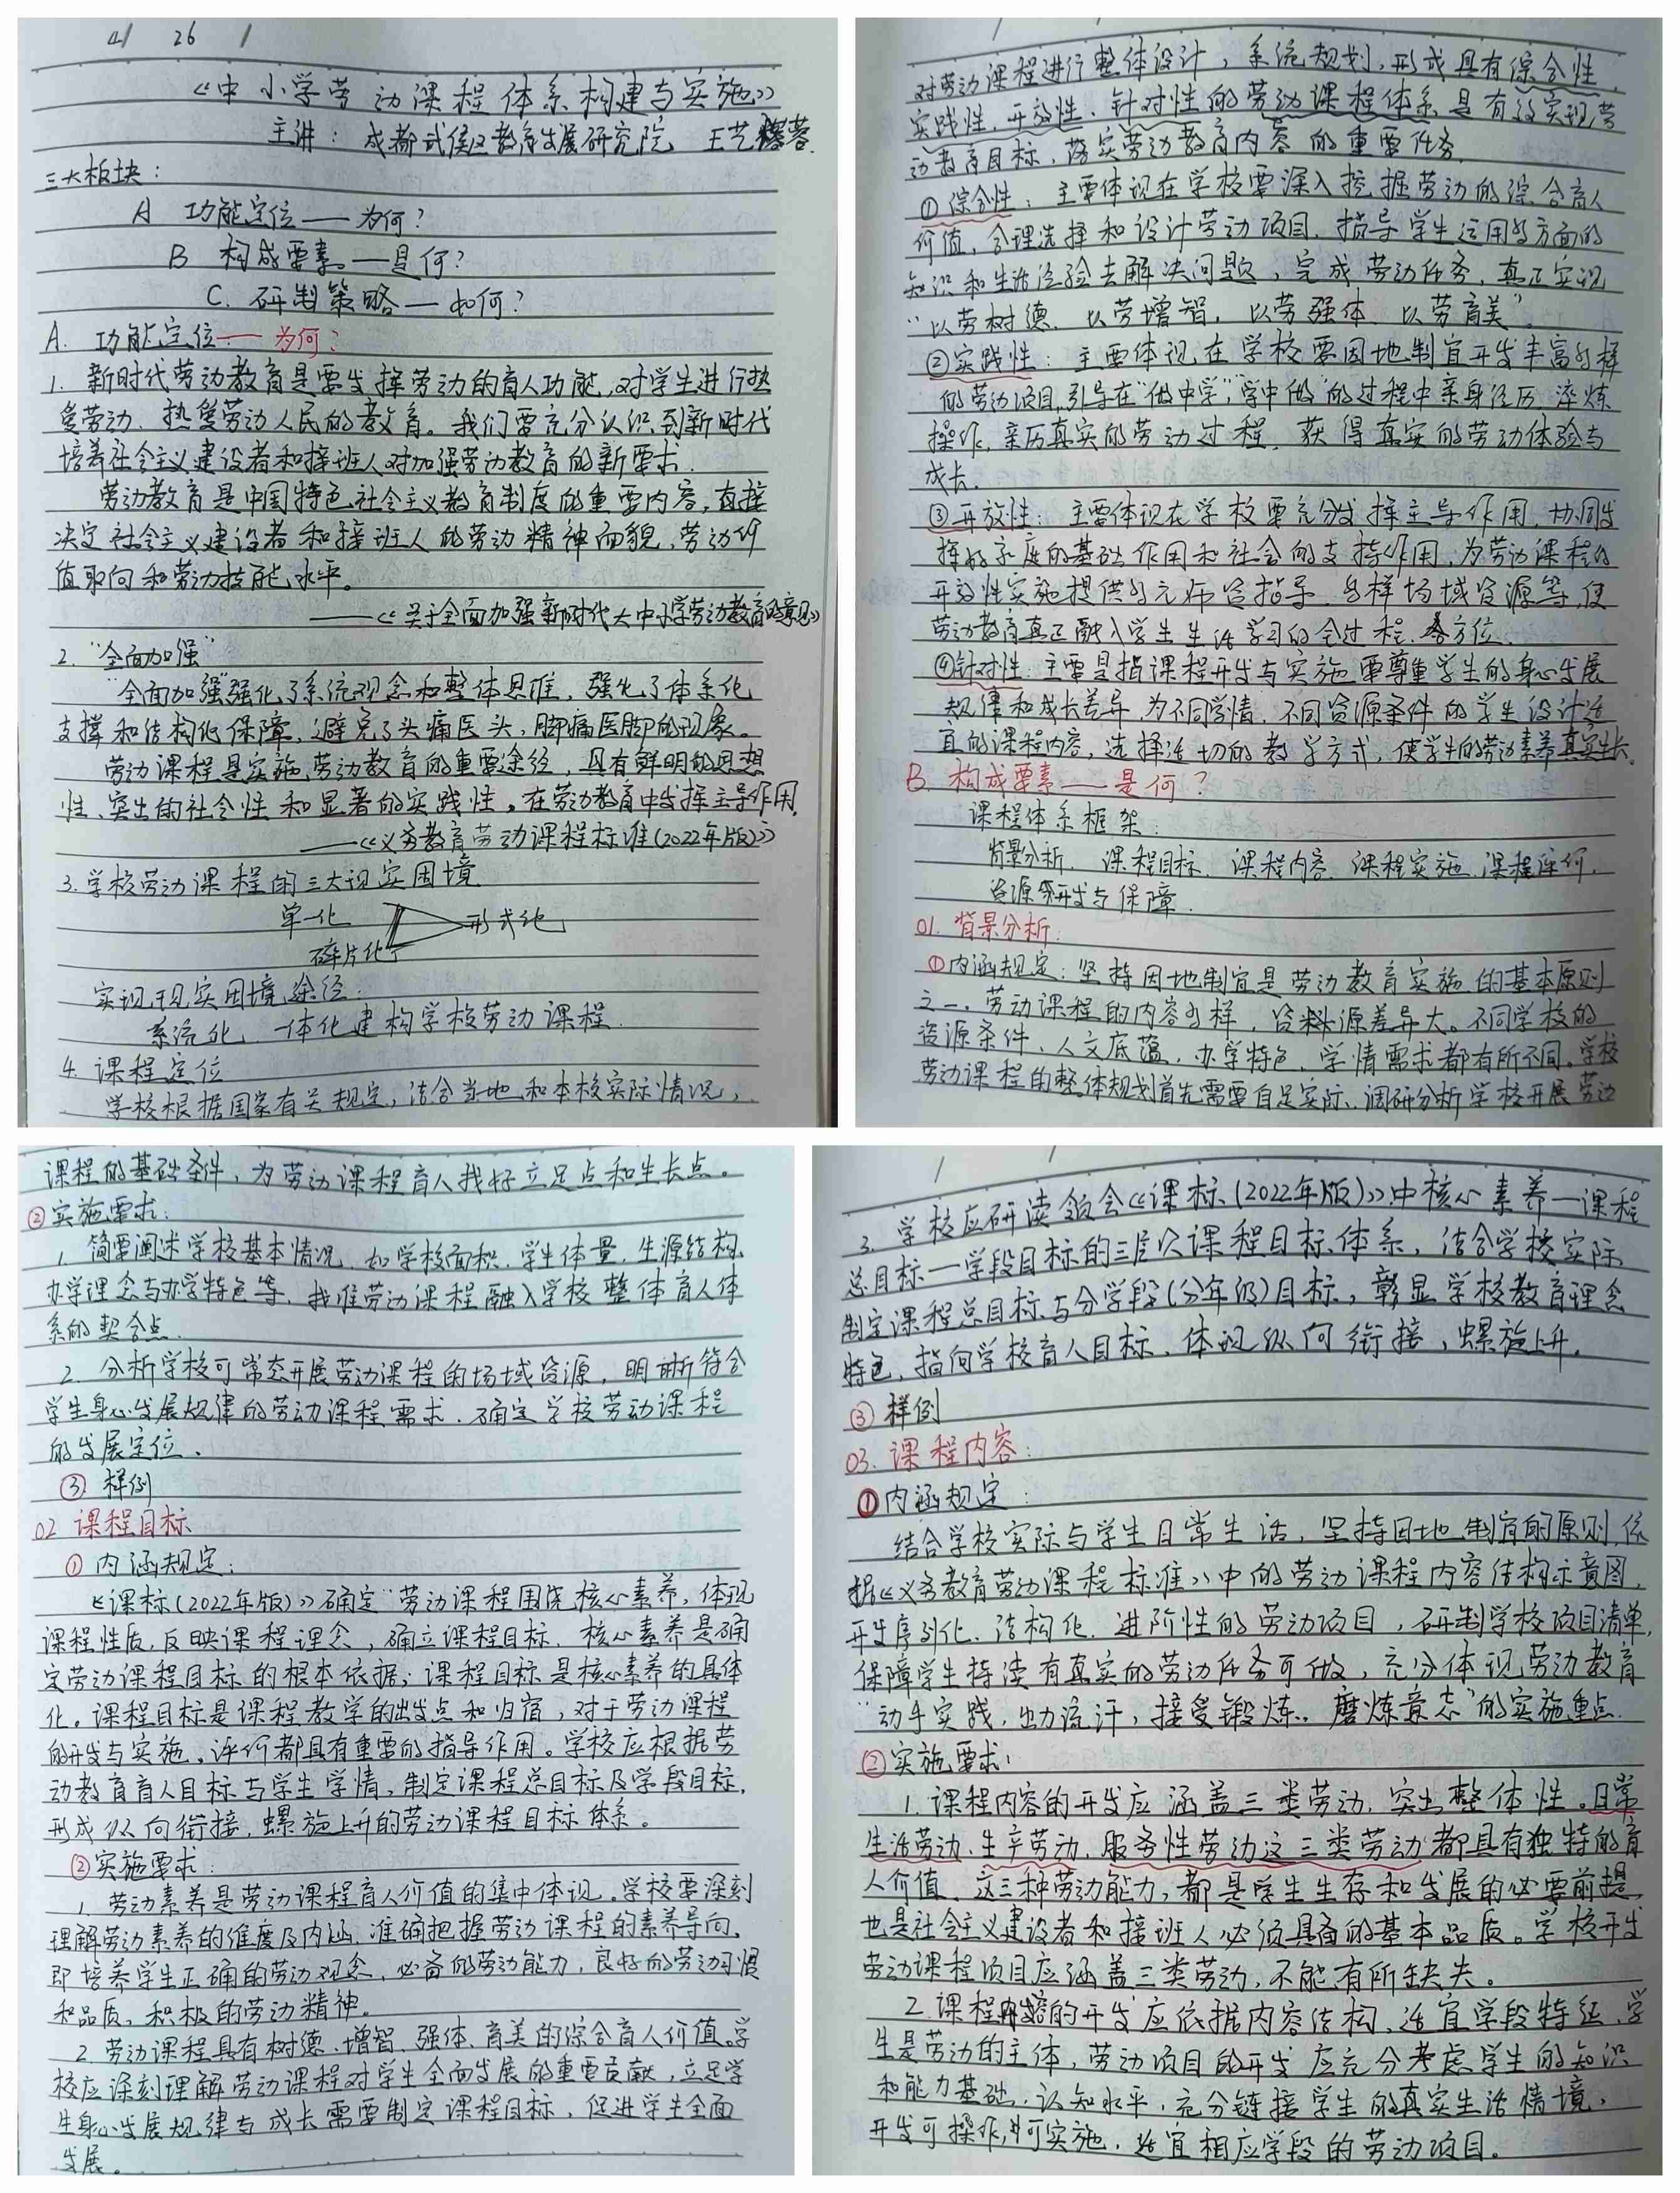 4/ 26 /
《中小学劳动课程体系构建与实施》
主讲：成都武侯区教育发展研究院 王艺蓉
三大板块：
A 功能定位——为何？
B 构成要素——是何？
C. 研制策略—如何？
A. 功能定位——为何？
1. 新时代劳动教育是要发挥劳动的育人功能，对学生进行热
爱劳动、热爱劳动人民的教育。我们要充分认识到新时代
培养社会主义建设者和接班人对加强劳动教育的新要求.
劳动教育是中国特色社会主义教育制度的重要内容，直接
决定社会主义建设者和接班人的劳动精神面貌，劳动价
值取向和劳动技能水平。
——《关于全面加强新时代大中小学劳动教育的意见》
2. "全面加强"
"全面加强"强化了系统观念和整体思维，强化了体系化
支撑和结构化保障，避免了头痛医头，脚痛医脚的现象。
劳动课程是实施劳动教育的重要途径，具有鲜明的思想
性、突出的社会性和显著的实践性。在劳动教育中发挥主导作用.
——《义务教育劳动课程标准(2022年版)》
3. 学校劳动课程的三大现实困境
单一化
形式化
碎片化
实现现实困境途径：
系统化，一体化建构学校劳动课程.
4. 课程定位
学校根据国家有关规定，结合当地和本校实际情况，
对劳动课程进行整体设计，系统规划，形成具有综合性、
实践性、开放性、针对性的劳动课程体系是有效实现劳
动教育目标，落实劳动教育内容的重要任务.
①综合性：主要体现在学校要深入挖掘劳动的综合育人
价值，合理选择和设计劳动项目，指导学生运用多方面的
知识和生活经验去解决问题，完成劳动任务，真正实现
"以劳树德、以劳增智，以劳强体、以劳育美"。
②实践性：主要体现在学校要因地制宜开发丰富多样
的劳动项目，引导在"做中学""学中做"的过程中亲身经历、淬炼
操作，亲历真实的劳动过程，获得真实的劳动体验与
成长.
③开放性：主要体现在学校要充分发挥主导作用，协同发
挥好家庭的基础作用和社会的支持作用，为劳动课程的
开放性实施提供多元师资指导、多样场域资源等，使
劳动教育真正融入学生生活学习的全过程、各方位.
④针对性：主要是指课程开发与实施要尊重学生的身心发展
规律和成长差异，为不同学情、不同资源条件的学生设计适
宜的课程内容，选择适切的教学方式，使学生的劳动素养真实生长.
B. 构成要素——是何？
课程体系框架：
背景分析、课程目标、课程内容、课程实施、课程评价、
资源开发与保障.
01. 背景分析：
①内涵规定：坚持因地制宜是劳动教育实施的基本原则
之一，劳动课程的内容多样，资源差异大。不同学校的
资源条件、人文底蕴，办学特色、学情需求都有所不同。学校
劳动课程的整体规划首先需要自足实际、调研分析学校开展劳动
课程的基础条件，为劳动课程育人找好立足点和生长点。
②实施要求：
1. 简要阐述学校基本情况，如学校面积，学生体量，生源结构、
办学理念与办学特色等，找准劳动课程融入学校整体育人体
系的契合点.
2. 分析学校可常态开展劳动课程的场域资源，明晰符合
学生身心发展规律的劳动课程需求，确定学校劳动课程
的发展定位.
③ 样例
02 课程目标
① 内涵规定：
《课标(2022年版)》确定"劳动课程围绕核心素养，体现
课程性质，反映课程理念，确立课程目标，核心素养是确
定劳动课程目标的根本依据；课程目标是核心素养的具体
化。课程目标是课程教学的出发点和归宿，对于劳动课程
的开发与实施、评价都具有重要的指导作用。学校应根据劳
动教育育人目标与学生学情，制定课程总目标及学段目标，
形成纵向衔接，螺旋上升的劳动课程目标体系。
②实施要求：
1. 劳动素养是劳动课程育人价值的集中体现。学校要深刻
理解劳动素养的维度及内涵，准确把握劳动课程的素养导向，
即培养学生正确的劳动观念，必备的劳动能力，良好的劳动习惯
和品质，积极的劳动精神。
2. 劳动课程具有树德、增智、强体、育美的综合育人价值。学
校应深刻理解劳动课程对学生全面发展的重要贡献，立足学
生身心发展规律与成长需要制定课程目标，促进学生全面
发展。
3. 学校应研读领会《课标(2022年版)》中核心素养—课程
总目标—学段目标的三层次课程目标体系，结合学校实际
制定课程总目标与分学段(分年级)目标，彰显学校教育理念
特色，指向学校育人目标，体现纵向衔接，螺旋上升.
③ 样例
03. 课程内容：
①内涵规定：
结合学校实际与学生日常生活，坚持因地制宜的原则，依
据《义务教育劳动课程标准》中的劳动课程内容结构示意图，
开发序列化、结构化、进阶性的劳动项目，研制学校项目清单，
保障学生持续有真实的劳动任务可做，充分体现劳动教育
"动手实践，出力流汗，接受锻炼，磨炼意志"的实施重点.
②实施要求：
1. 课程内容的开发应涵盖三类劳动，突出整体性。日常
生活劳动、生产劳动、服务性劳动这三类劳动都具有独特的育
人价值，这三种劳动能力，都是学生生存和发展的必要前提，
也是社会主义建设者和接班人必须具备的基本品质。学校开发
劳动课程项目应涵盖三类劳动，不能有所缺失。
2. 课程内容的开发应依据内容结构，适宜学段特征，学
生是劳动的主体，劳动项目的开发应充分考虑学生的知识
和能力基础，认知水平，充分链接学生的真实生活情境，
开发可操作，可实施，适宜相应学段的劳动项目。